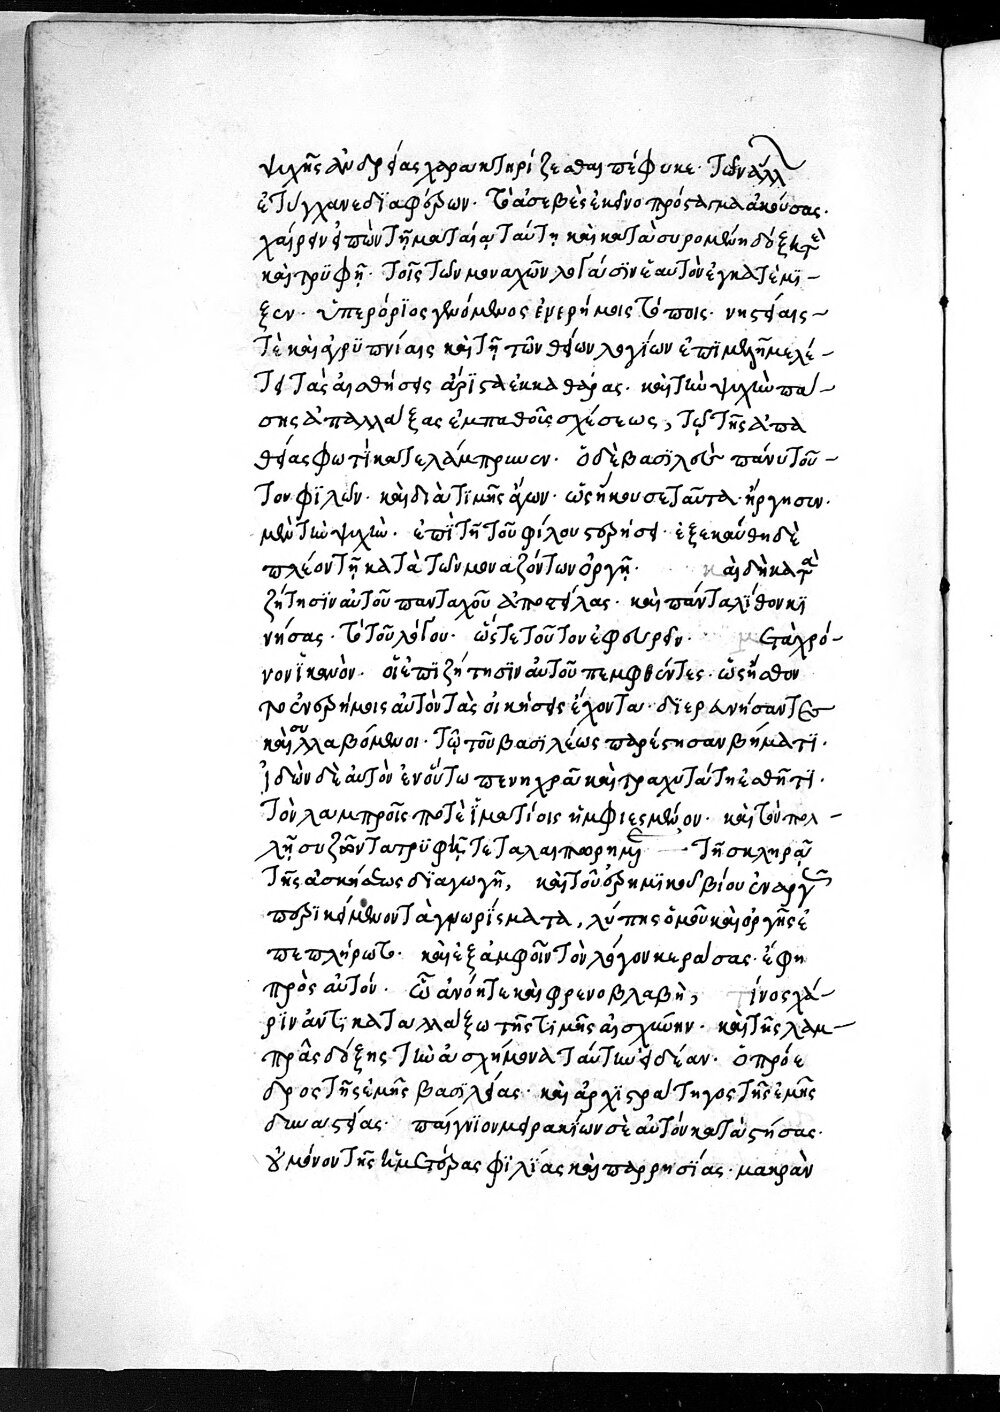 ψυχῆς ἀνδρείας χαρακτηρίζεσθαι πέφυκε· τῶν ἄλλων
ἐτύγχανε διαφόρων· τὸ ἀσεβὲς ἐκεῖνο πρόσταγμα ἀκούσας·
χαίρειν εἰπὼν τῇ ματαίᾳ ταύτῃ καὶ κάτω συρομένῃ δόξῃ τὲ
καὶ τρϋφῇ· τοῖς τῶν μοναχῶν λογάσϊν ἑαυτὸν ἐγκατέμϊ-
ξεν· ὑπερόρϊος γενόμενος ἐν ἐρήμοις τόποις· νηστείαις-
τὲ καὶ ἀγρϋπνίαις καὶ τῇ τῶν θείων λογίων ἐπϊμελῆ μελέ-
τῃ τὰς αἰσθήσεις ἄρϊστα ἐκκαθάρας· καὶ τὴν ψυχὴν πά-
σης ἀπαλλάξας ἐμπαθοῦς σχέσεως, τῷ τῆς ἀπα
θείας φωτὶ κατελάμπρυνεν· ὁ δὲ βασϊλεὺς πάνυ τοῦ-
τον φϊλῶν· καὶ διὰ τϊμῆς ἄγων· ὡς ἤκουσε ταῦτα· ἤλγησεν·
μὲν τὴν ψυχὴν· ἐπὶ τῇ τοῦ φίλου στερήσει· ἐξεκαύθη δὲ
πλέον τῇ κατὰ τῶν μοναζόντων ὀργῇ· καὶ δὴ κατὰ
ζήτησϊν αὐτοῦ πανταχοῦ ἀποστείλας· καὶ πάντα λίθον κϊ
νήσας· τὸ τοῦ λόγου· ὥστε τοῦτον ἐφευρεῖν· μετὰ χρό-
νον ἱκανὸν· οἱ ἐπϊζήτησϊν αὐτοῦ πεμφθέντες· ὡς ᾔσθον
το ἐν ἐρήμοις αὐτὸν τὰς οἰκήσεις ἔχοντα· δϊερευνήσαντες
καὶ συλλαβόμενοι· τῷ τοῦ βασιλέως παρέστησαν βήματϊ·
ἰδὼν δὲ αὐτὸν ἐν οὕτω πενηχρᾷ καὶ τραχυτάτῃ ἐσθῆτϊ·
τὸν λαμπροῖς ποτὲ ἱματίοις ἠμφιεσμένον· καὶ τὸν πολ-
λῇ συζῶντα τρϋφῇ· τεταλαιπωρημένον τῇ σκληρᾷ
τῆς ἀσκήσεως δϊαγωγῇ, καὶ τοῦ ἐρημϊκοῦ βίου ἐναργῶς
περϊκείμενον τὰ γνωρίσματα, λύπης ὁμοῦ καὶ ὀργῆς ἐ
πεπλήρωτο· καὶ ἐξ ἀμφοῖν τὸν λόγον κεράσας· ἔφη
πρὸς αὐτόν· ὦ ἀνόητε καὶ φρενοβλαβὴ, τίνος χά-
ρϊν ἀντικατάλλαξω τῆς τϊμῆς αἰσχύνην· καὶ τῆς λαμ-
πρᾶς δόξης τὴν ἀσχήμονα ταύτην ἰδέαν· ὁ πρόε
δρος τῆς ἐμῆς βασϊλείας· καὶ ἀρχϊστράτηγος τῆς ἐμῆς
δυναστείας· παίγνϊον μειρακίων σὲ αὐτὸν καταστήσας·
οὐ μόνον τῆς ἡμετέρας φϊλίας καὶ παρρησίας· μακρὰν